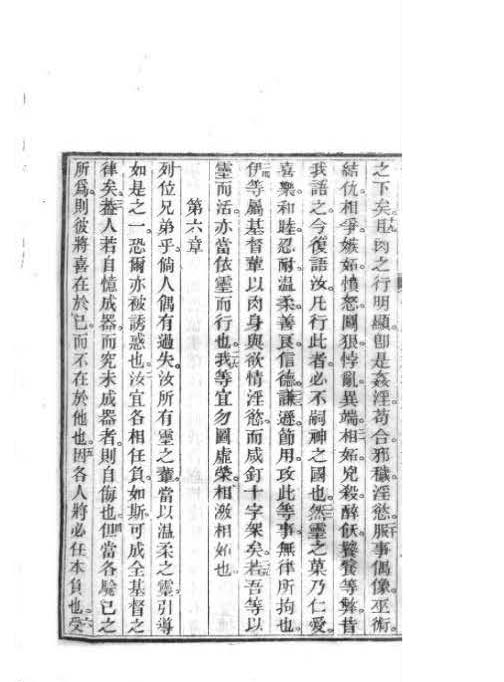 之下矣且肉之行明顯卽是姦淫苟合邪穢淫慾服事偶像巫術
結仇相爭嫉妬憤怒鬭狠悖亂異端相妬兇殺醉飫饕餮等獘昔
我語之今復語汝凡行此者必不嗣神之國也然靈之菓乃仁愛
喜樂和睦忍耐溫柔善良信德謙遜節用攻此等事無律所拘也
伊等屬基督輩以肉身與欲情淫慾而咸釘十字架矣若吾等以
靈而活亦當依靈而行也我等宜勿圖虛榮相激相妬也
第六章
列位兄弟乎倘人偶有過失汝所有靈之輩當以溫柔之靈引導
如是之一恐爾亦被誘惑也汝宜各相任負如斯可成全基督之
律矣葢人若自憶成器而究未成器者則自侮也但當各騐己之
所爲則彼將喜在於己而不在於他也因各人將必任本負也受